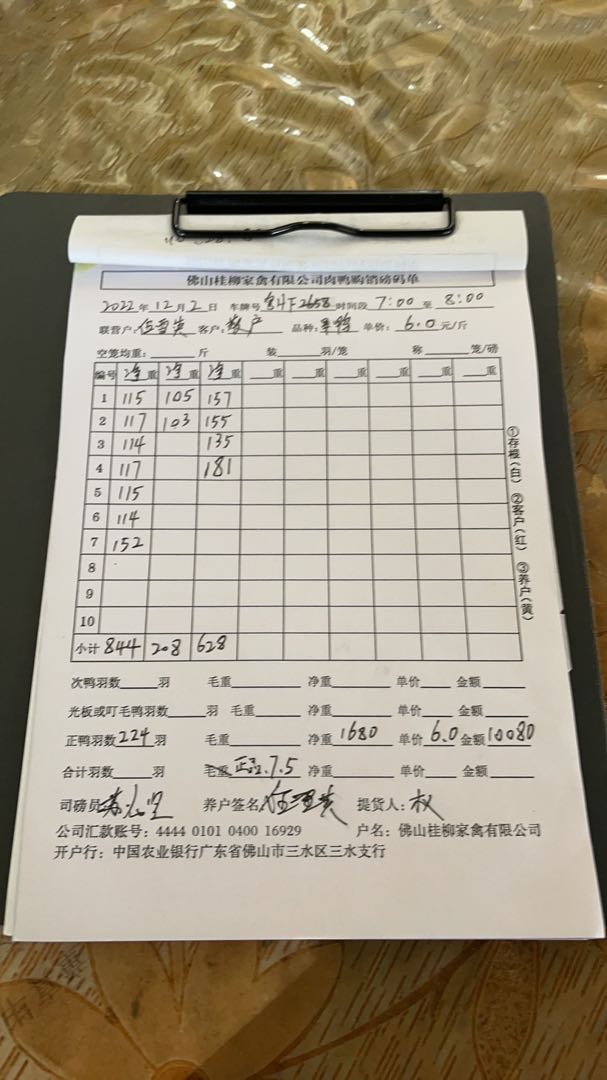 佛山桂柳家禽有限公司肉鸭购销磅码单
2022年12月2日 车牌号 粤HF2658 时间段 7:00 至 8:00
联营户: 客户: 散户 品种: 单价: 6.0 元/斤
空笼均重: 斤 装 羽/笼 称 笼/磅
编号 净重 净重 净重 重 重 重 重 重 重
1 115 105 157
2 117 103 155
3 114 135
4 117 181
5 115
6 114
7 152
8
9
10
小计 844 208 628
次鸭羽数 羽 毛重 净重 单价 金额
光板或叮毛鸭羽数 羽 毛重 净重 单价 金额
正鸭羽数 224 羽 毛重 净重 1680 单价 6.0 金额 10080
合计羽数 羽 毛重 7.5 净重 单价 金额
司磅员 养户签名 提货人: 权
公司汇款账号: 4444 0101 0400 16929 户名: 佛山桂柳家禽有限公司
开户行: 中国农业银行广东省佛山市三水区三水支行
①存根(白) ②客户(红) ③养户(黄)